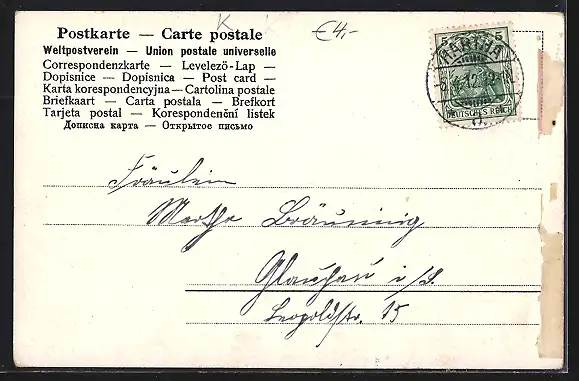 Postkarte — Carte postale
Weltpostverein — Union postale universelle
Correspondenzkarte — Levelező-Lap —
Dopisnice — Dopisnica — Post card —
Karta korespondencyjna — Cartolina postale
Briefkaart — Carta postala — Brefkort
Tarjeta postal — Korespondenční listek
Дописна карта — Открытое письмо
€4,-
5 5
DEUTSCHES REICH
Fräulein
Martha Bräunig
Glauchau i/S.
Leopoldstr. 15